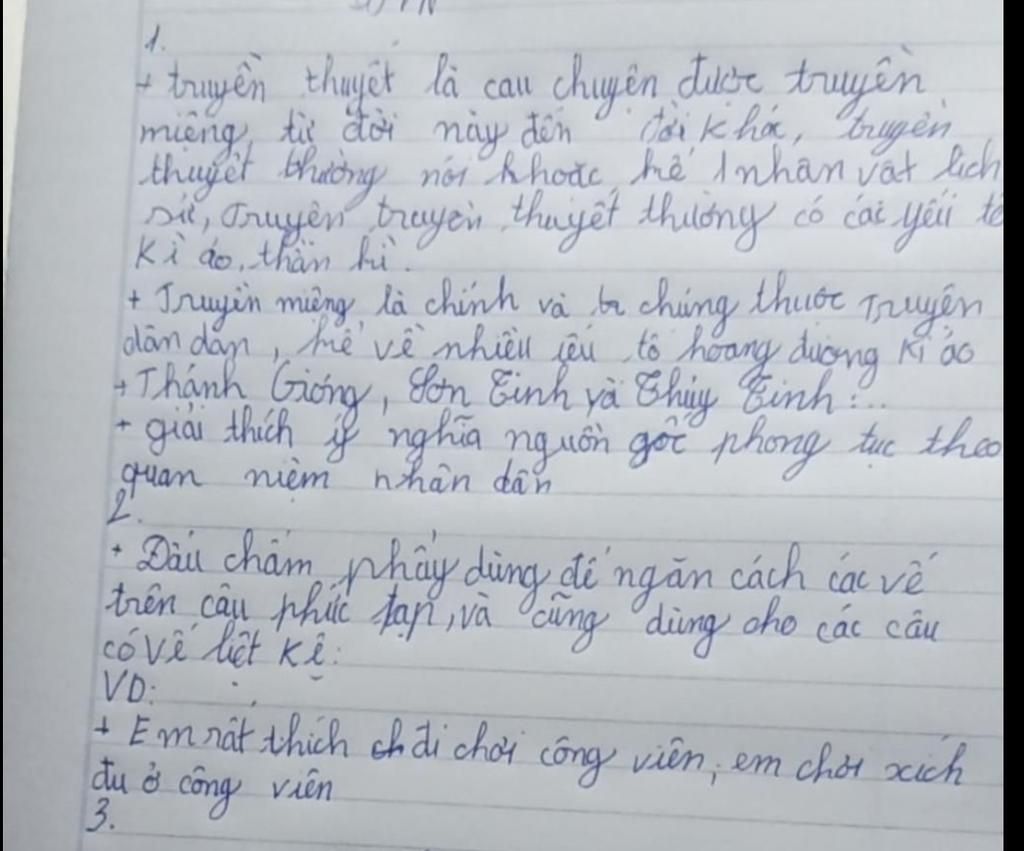 1.
+ truyền thuyết là cau chuyện được truyền
miệng, từ đời này đến đời khác, truyện
thuyết thường nói khoác, kể 1 nhân vật lịch
sử, Truyện truyền thuyết thường có các yếu tố
Kì ảo, thần kì.
+ Truyền miệng là chính và chúng thuộc Truyện
dân dan, kể về nhiều yếu tô hoang đường Kì ảo
+ Thánh Gióng, Sơn Tinh và Thủy Tinh :...
+ giải thích ý nghĩa nguồn gốc phong tục theo
quan niệm nhân dân
2.
+ Dấu chấm phẩy dùng để ngăn cách các vế
trên câu phức tạp, và cũng dùng cho các câu
có vế liệt kê:
VD:
+ Em rất thích đi chơi công viên; em chơi xích
đu ở công viên
3.